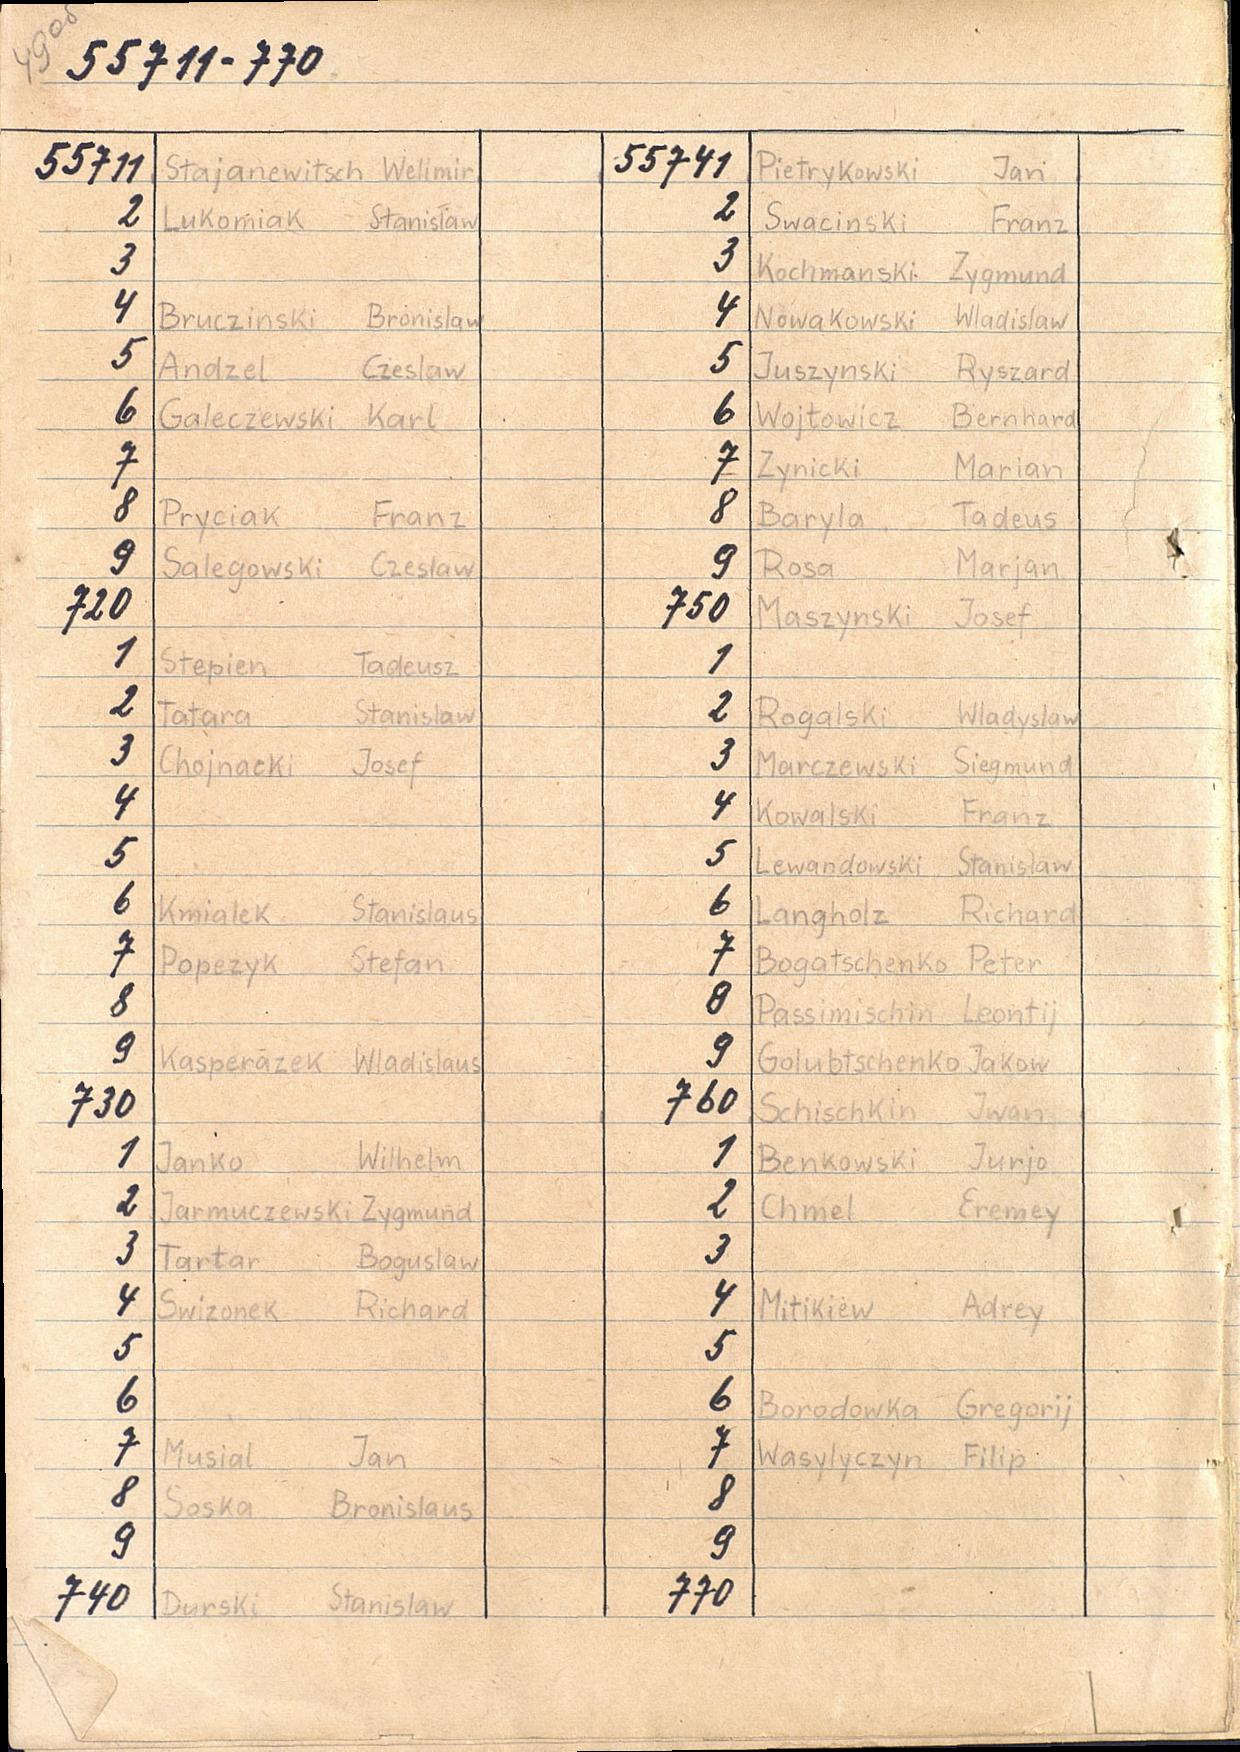 55711-770
55711 Stajanewitsch Welimir
2 Lukomiak Stanislaw
3
4 Bruczinski Bronislaw
5 Andzel Czeslaw
6 Galeczewski Karl
7
8 Pryciak Franz
9 Salegowski Czeslaw
720
1 Stepien Tadeusz
2 Tatara Stanislaw
3 Chojnacki Josef
4
5
6 Kmialek Stanislaus
7 Popezyk Stefan
8
9 Kasperazek Wladislaus
730
1 Janko Wilhelm
2 Jarmuczewski Zygmund
3 Tartar Boguslaw
4 Swizonek Richard
5
6
7 Musial Jan
8 Soska Bronislaus
9
740 Durski Stanislaw
55741 Pietrykowski Jan
2 Swacinski Franz
3 Kochmanski Zygmund
4 Nowakowski Wladislaw
5 Juszynski Ryszard
6 Wojtowicz Bernhard
7 Zynicki Marian
8 Baryla Tadeus
9 Rosa Marjan
750 Maszynski Josef
1
2 Rogalski Wladyslaw
3 Marczewski Siegmund
4 Kowalski Franz
5 Lewandowski Stanislaw
6 Langholz Richard
7 Bogatschenko Peter
8 Passimischin Leontij
9 Golubtschenko Jakow
760 Schischkin Jwan
1 Benkowski Jurjo
2 Chmel Eremey
3
4 Mitikiew Adrey
5
6 Borodowka Gregorij
7 Wasylyczyn Filip
8
9
770